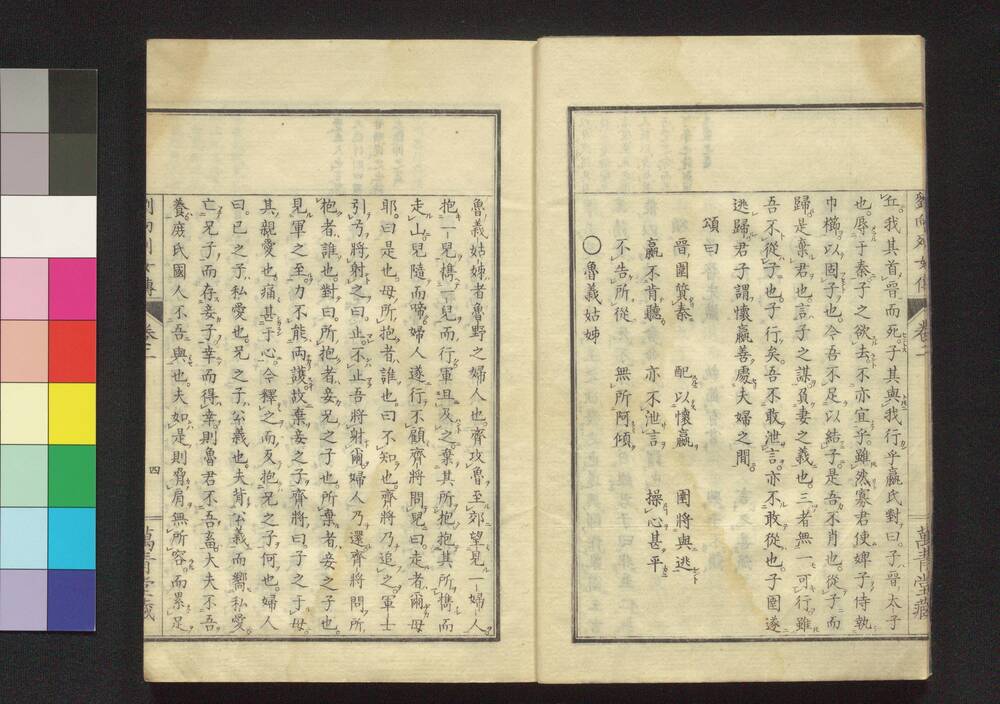 丘我其首晉而死子其與我行乎嬴氏對曰子晉太子
也辱于秦子之欲去不亦宜乎雖然寡君使婢子侍執
巾櫛以固子也今吾不足以結子是吾不肖也從子而
歸是棄君也言子之謀負妻之義也三者無一可行雖
吾不從子也子行矣吾不敢泄言亦不敢從也子圉遂
逃歸君子謂懷嬴善處夫婦之間
頌曰
晉圉質秦 配以懷嬴 圉將與逃
嬴不肯聽 亦不泄言 操心甚平
不告所從 無所阿傾
○魯義姑姊
魯義姑姊者魯野之婦人也齊攻魯至郊望見一婦人
抱一兒攜一兒而行軍且及之棄其所抱抱其所攜而
走山兒隨而啼婦人遂行不顧齊將問兒曰走者爾母
耶曰是也母所抱者誰也曰不知也齊將乃追之軍士
引弓將射之曰止不止吾將射爾婦人乃還齊將問所
抱者誰也對曰所抱者妾兄之子也所棄者妾之子也
見軍之至力不能兩護故棄妾之子齊將曰子之于母
其親愛也痛甚于心今釋之而反抱兄之子何也婦人
曰己之子私愛也兄之子公義也夫背公義而嚮私愛
亡兄子而存妾子幸而得幸則魯君不吾畜大夫不吾
養庶氏國人不吾與也夫如是則脅肩無所容而累足
四
萬青堂藏